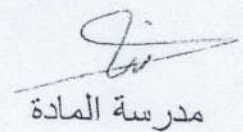 مدرسة المادة